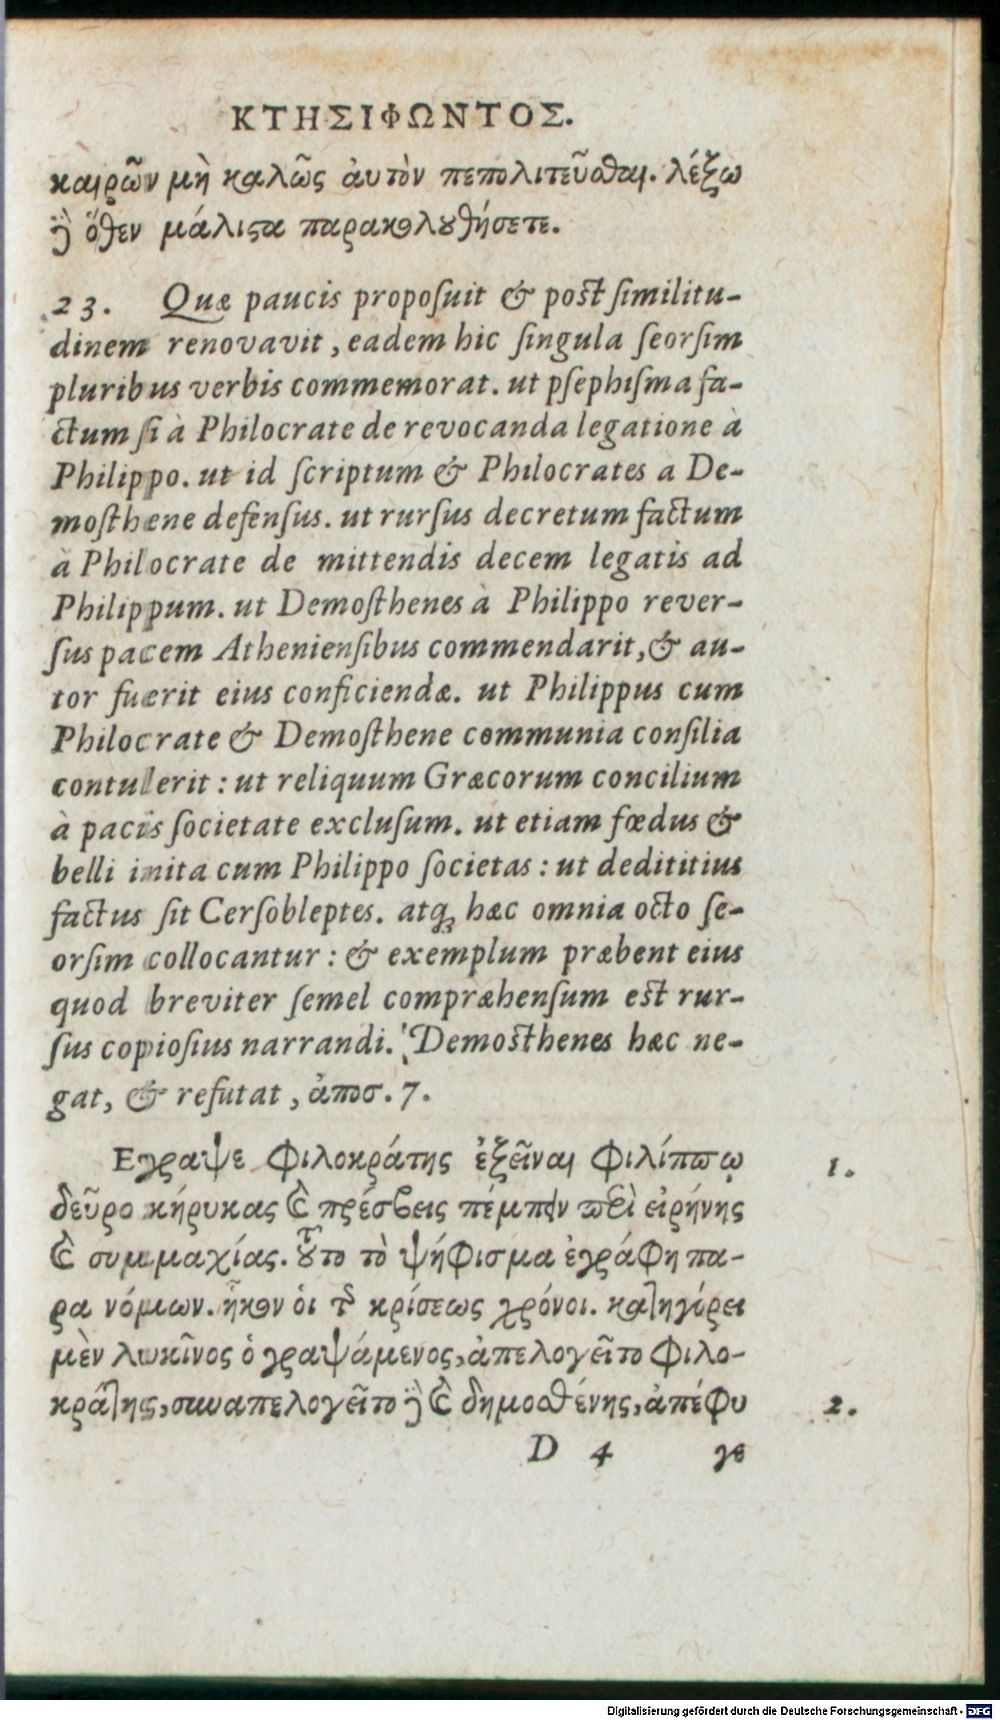 ΚΤΗΣΙΦΩΝΤΟΣ.
καιρῶν μὴ καλῶς ἀυτὸν πεπολιτεῦσθαι. λέξω
δὲ ὅθεν μάλιστα παρακολουθήσετε.
23. Quæ paucis proposuit & post similitu-
dinem renovavit, eadem hic singula seorsim
pluribus verbis commemorat. ut psephisma fa-
ctum si à Philocrate de revocanda legatione à
Philippo. ut id scriptum & Philocrates a De-
mosthene defensus. ut rursus decretum factum
à Philocrate de mittendis decem legatis ad
Philippum. ut Demosthenes à Philippo rever-
sus pacem Atheniensibus commendarit, & au-
tor fuerit eius conficiendæ. ut Philippus cum
Philocrate & Demosthene communia consilia
contulerit : ut reliquum Græcorum concilium
à pacis societate exclusum. ut etiam fœdus &
belli inita cum Philippo societas : ut dedititius
factus sit Cersobleptes. atq; hæc omnia octo se-
orsim collocantur : & exemplum præbent eius
quod breviter semel compræhensum est rur-
sus copiosius narrandi. Demosthenes hæc ne-
gat, & refutat, ἀποσ. 7.
Εγραψε Φιλοκράτης ἐξεῖναι Φιλίππῳ 1.
δεῦρο κήρυκας καὶ πρέσβεις πέμπειν περὶ εἰρήνης
καὶ συμμαχίας. τοῦτο τὸ ψήφισμα ἐγράφη πα-
ρα νόμων. ἧκον ὁι τῆς κρίσεως χρόνοι. κατηγόρει
μὲν λυκῖνος ὁ γραψάμενος, ἀπελογεῖτο Φιλο-
κράτης, συναπελογεῖτο δὲ καὶ δημοσθένης, ἀπέφυ 2.
D 4 γε
Digitalisierung gefördert durch die Deutsche Forschungsgemeinschaft - DFG